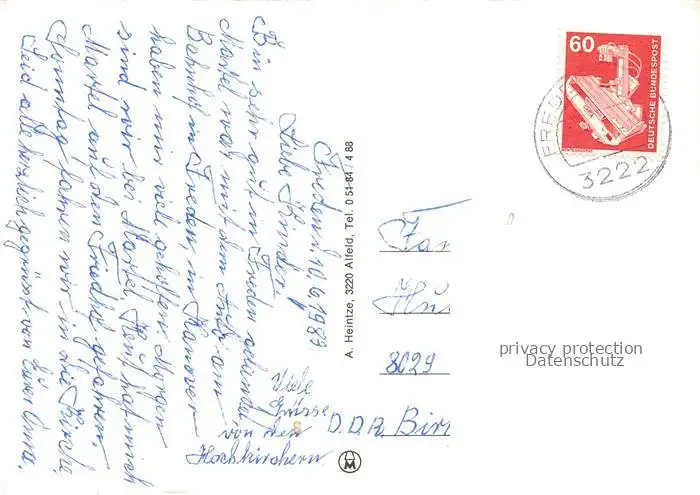 Freden, 10.6.1989
Liebe Kinder,
Bin sehr gut in Freden gelandet
Martel war mit dem Auto am
Bahnhof in Freden, in Hanover
haben mir viele geholfen. Morgen
sind wir bei Martel. Heut hat mich
Martel auf den Friedhof gefahren.
Sonntag fahren wir in die Kirche.
Seid alle herzlich gegrüsst von Eurer Oma.
Viele
Grüsse
von den
Hochkirchern
A. Heintze, 3220 Alfeld, Tel. 0 51-84 · 4 88
60
DEUTSCHE BUNDESPOST
FRED
3222
Fam
Hus
8029
D.D.R. Bir
privacy protection
Datenschutz